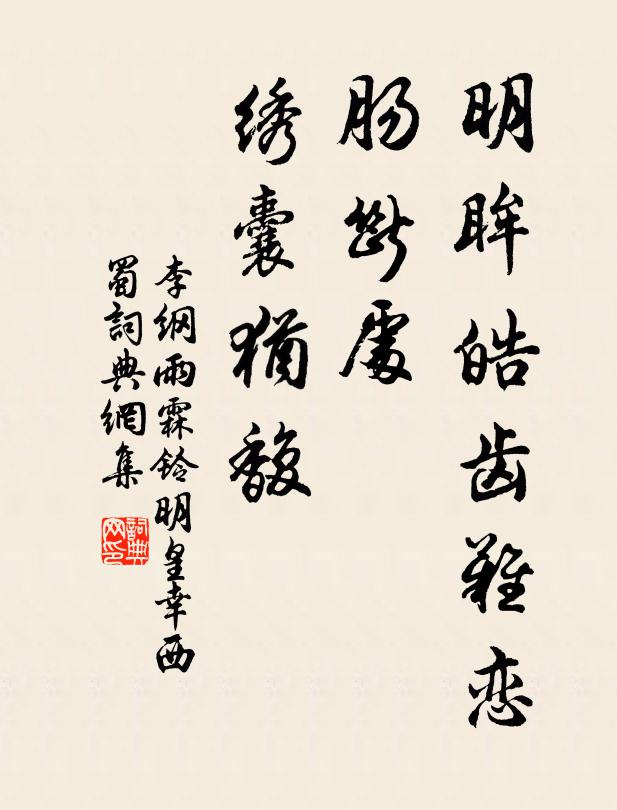 明眸皓齿难恋
肠断处
绣囊犹馥
李纲雨霖铃明皇幸西
蜀詞典網集
詞典网印